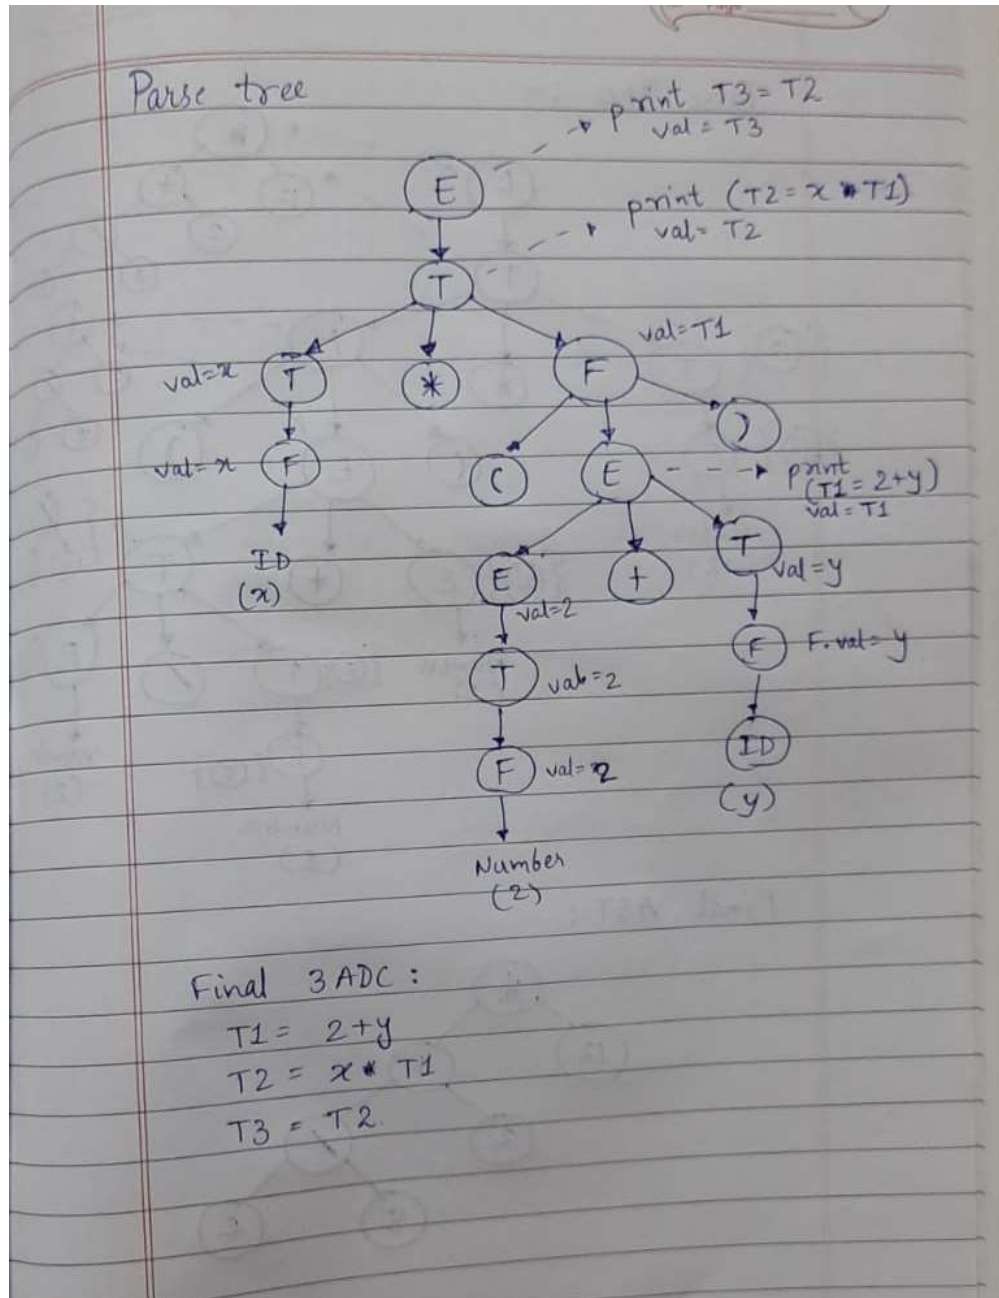 Parse tree
print T3 = T2
val = T3
E
print (T2 = x * T1)
val = T2
T
val = T1
val = x
T
*
F
)
val = x
F
(
E
print
(T1 = 2+y)
val = T1
ID
(x)
E
val=2
+
T
val = y
T
val = 2
F
F. val = y
F
val = 2
ID
(y)
Number
(2)
Final 3 ADC :
T1 = 2 + y
T2 = x * T1
T3 = T2